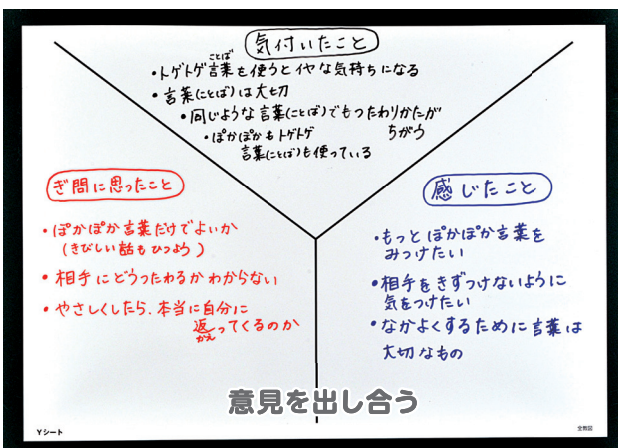 気付いたこと
・トゲトゲ言葉を使うとイヤな気持ちになる
ことば
・言葉(ことば)は大切
・同じような言葉(ことば)でもつたわりかたが
ちがう
・ぽかぽかもトゲトゲ
言葉(ことば)も使っている
ぎ問に思ったこと
・ぽかぽか言葉だけでよいか
(きびしい話もひつよう)
・相手にどうつたわるかわからない
・やさしくしたら、本当に自分に
返ってくるのか
かえ
感じたこと
・もっとぽかぽか言葉を
みつけたい
・相手をきずつけないように
気をつけたい
・なかよくするために言葉は
大切なもの
意見を出し合う
Yシート